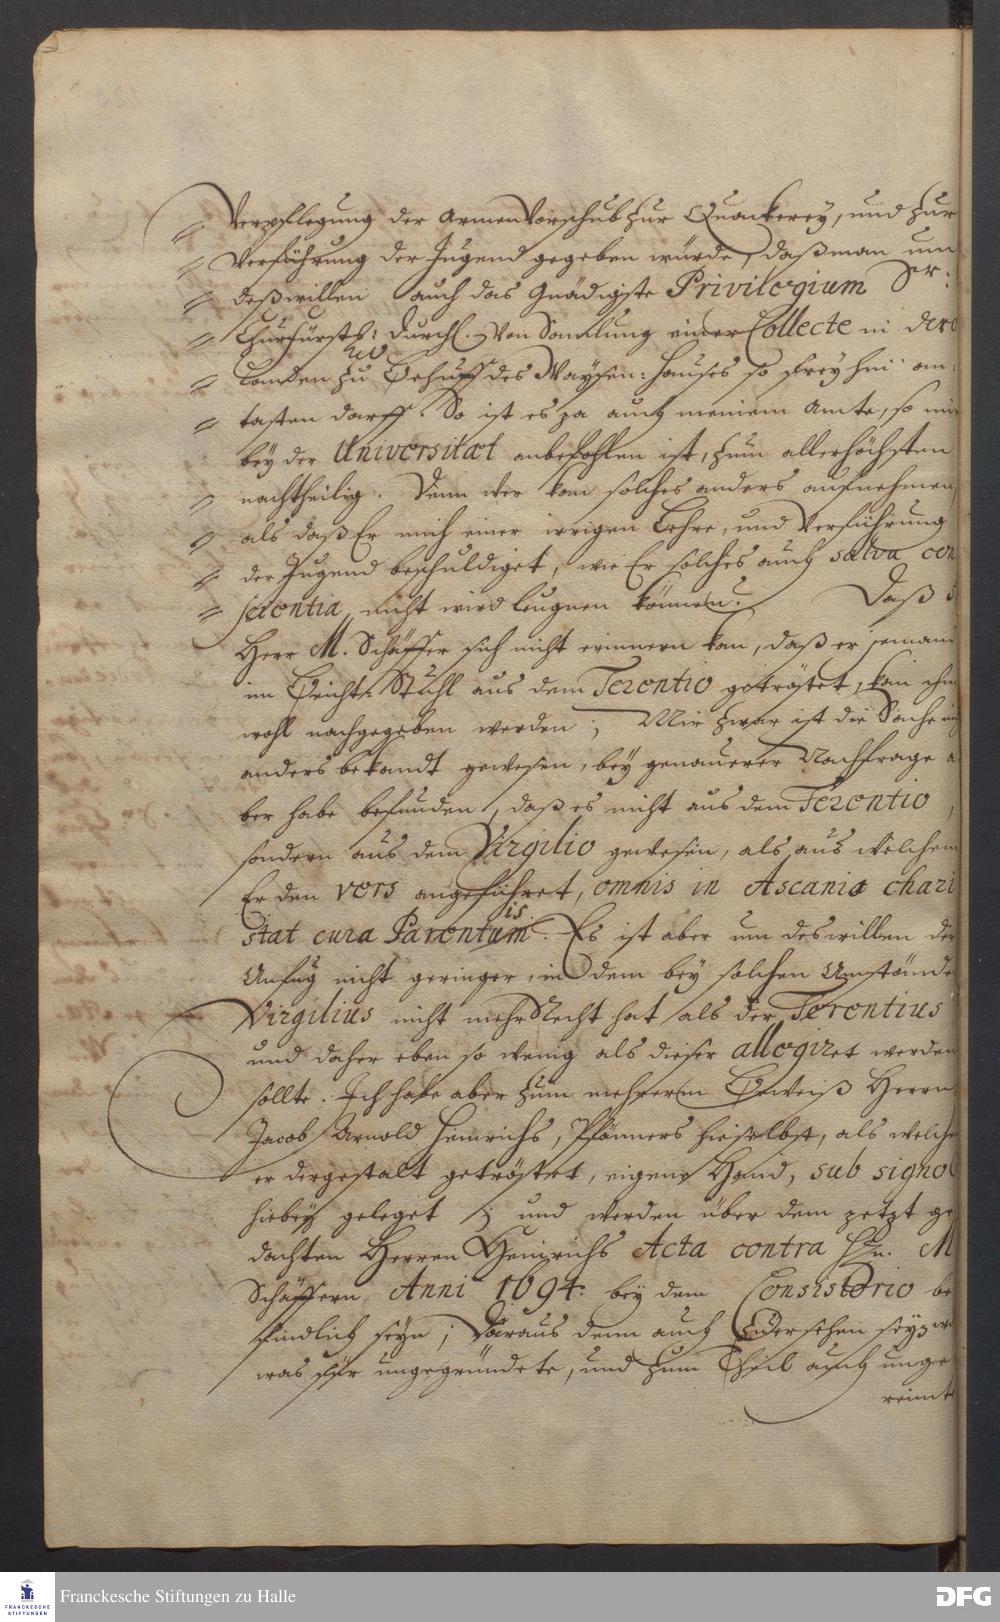 " Verpflegung der Armen Vorschub zur Quackerey, und zur
" Verführung der Jugend gegeben würde, daß man um
" deßwillen auch das Gnädigste Privilegium Sr:
" Churfürstl: Durchl. von Samlung einer Collecte in dero
" Landen zu Behuff des Waysen-Hauses so frey hin an-
" tasten darff. So ist es ja auch meinem Amte, so mir
bey der Universitæt anbefohlen ist, zum allerhöchsten
" nachtheilig. Denn wer kan solches anders aufnehmen,
" als daß Er mich einer irrigen Lehre, und Verführung
" der Jugend beschuldiget, wie Er solches auch salva con
" scientia nicht wird leugnen können. Daß
Herr M. Schäffer sich nicht erinnern kan, daß er jemand
im Beicht-Stuhl aus dem Terentio getröstet, kan ihm
wohl nachgegeben werden; Mir zwar ist die Sache nicht
anders bekandt gewesen, bey genauerer Nachfrage a
ber habe befunden, daß es nicht aus dem Terentio,
sondern aus dem Virgilio gewesen, als aus welchem
Er den vers angeführet, omnis in Ascanio chari
stat cura Parentis. Es ist aber um deswillen der
Unfug nicht geringer, in dem bey solchen Umständen
Virgilius nicht mehr Recht hat als der Terentius
und daher eben so wenig als dieser allegiret werden
sollte. Ich habe aber zum mehrerm Beweiß Herrn
Jacob Arnold Heinrichs, Pfänners hieselbst, als welchen
er dergestalt getröstet, eigene Hand, sub signo
hiebey geleget; und werden über dem jetzt ge
dachten Herren Heinrichs Acta contra Hn. M
Schäffern Anni 1694. bey dem Consistorio be
findlich seyn; Daraus denn auch zu ersehen seyn wi
was für ungegründete, und zum Theil auch unge
reimte
Franckesche Stiftungen zu Halle
FRANCKESCHE
STIFTUNGEN
DFG